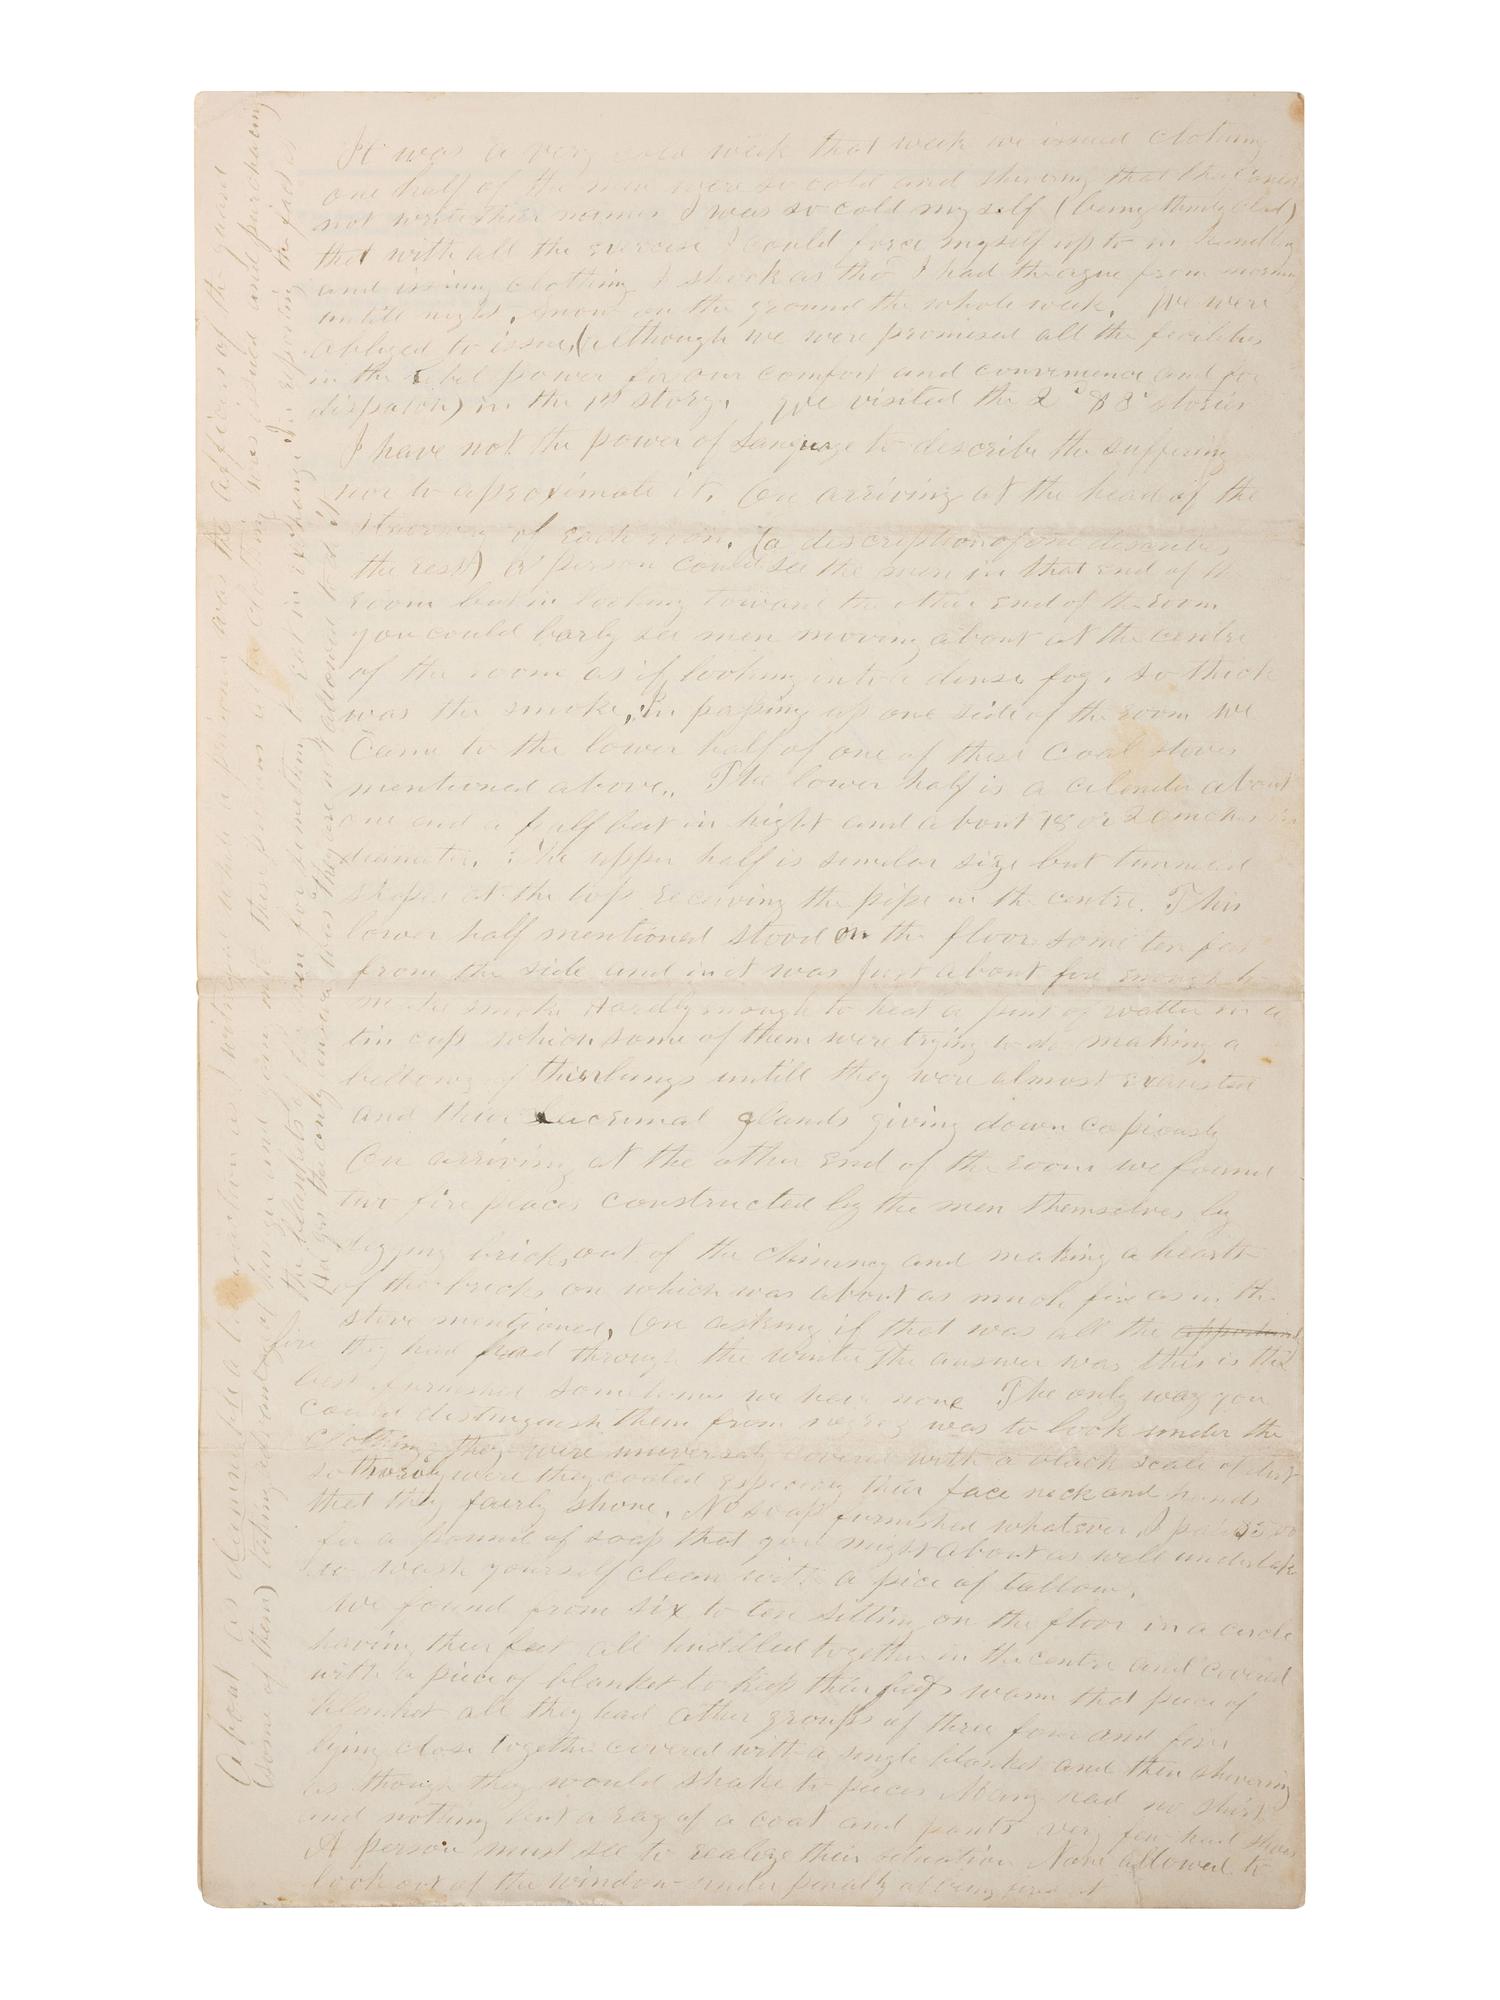 It was a very cold week that week we issued clothing
one half of the men were so cold and shivering that they could
not write thier names I was so cold my self (being thinly clad)
that with all the exercise I could force myself up to in handling
and issuing clothing I shook as tho I had the ague from morning
untill night, snow on the ground the whole week. We were
obliged to issue, (although we were promised all the facilities
in the rebel power for our comfort and convenience and for
dispatch) in the 1st story. We visited the 2d & 3d stories
I have not the power of language to describe the suffering
nor to aproximate it. On arriving at the head of the
stairway of each room, (a description of one describes
the rest) a person could see the men in that end of the
room but in looking toward the other end of the room
you could barly see men moving about at the centre
of the room as if looking into a dense fog, so thick
was the smoke, In passing up one side of the room we
came to the lower half of one of these coal stoves
mentioned above. The lower half is a cilender about
one and a half feet in hight and about 18 or 20 inches in
diameter. The upper half is similar size but tunneled
shaped at the top receiving the pipe in the centre. This
lower half mentioned stood on the floor some ten feet
from the side and in it was just about fire enough to
make smoke Hardly enough to heat a pint of watter in a
tin cup which some of them were trying to do making a
bellows of thier lungs untill they were almost exausted
and thier lacrimal glands giving down copiously
On arriving at the other end of the room we found
two fire places constructed by the men themselves by
digging bricks out of the chimney and making a hearth
of the bricks on which was about as much fire as in the
stove mentioned, On asking if that was all the
fire they had had through the winter The answer was this is the
best furnished sometimes we have none The only way you
could distinguish them from negroes was to look under the
clothing they were universaly covered with a black scale of dirt
so thoroly were they coated especialy thier face neck and hands
that they fairly shone. No soap furnished whatever I paid
for a pound of soap that you might about as well undertake
to wash yourself clean with a pice of tallow.
We found from six to ten sitting on the floor in a circle
having thier feet all huddled together in the centre and covered
with a piece of blanket to keep thier feet warm that piece of
blanket all they had other groups of three four and five
lying close together covered with a single blanket and then shivering
as though they would shake to pieces Many had no shirt
and nothing but a rag of a coat and pants very few had shoes
A person must see to realize thier situation None allowed to
look out of the window under penalty of being fired at
About as deminutive a transaction as I witnessed while a prisoner was the officers of the guard
(some of them) taking advantage of hunger and going in to these prisoners as the clothing was issued and purchasing
the blankets of the men for something to eat in exchange In reporting the fact to
the only answer was they are not allowed to do it